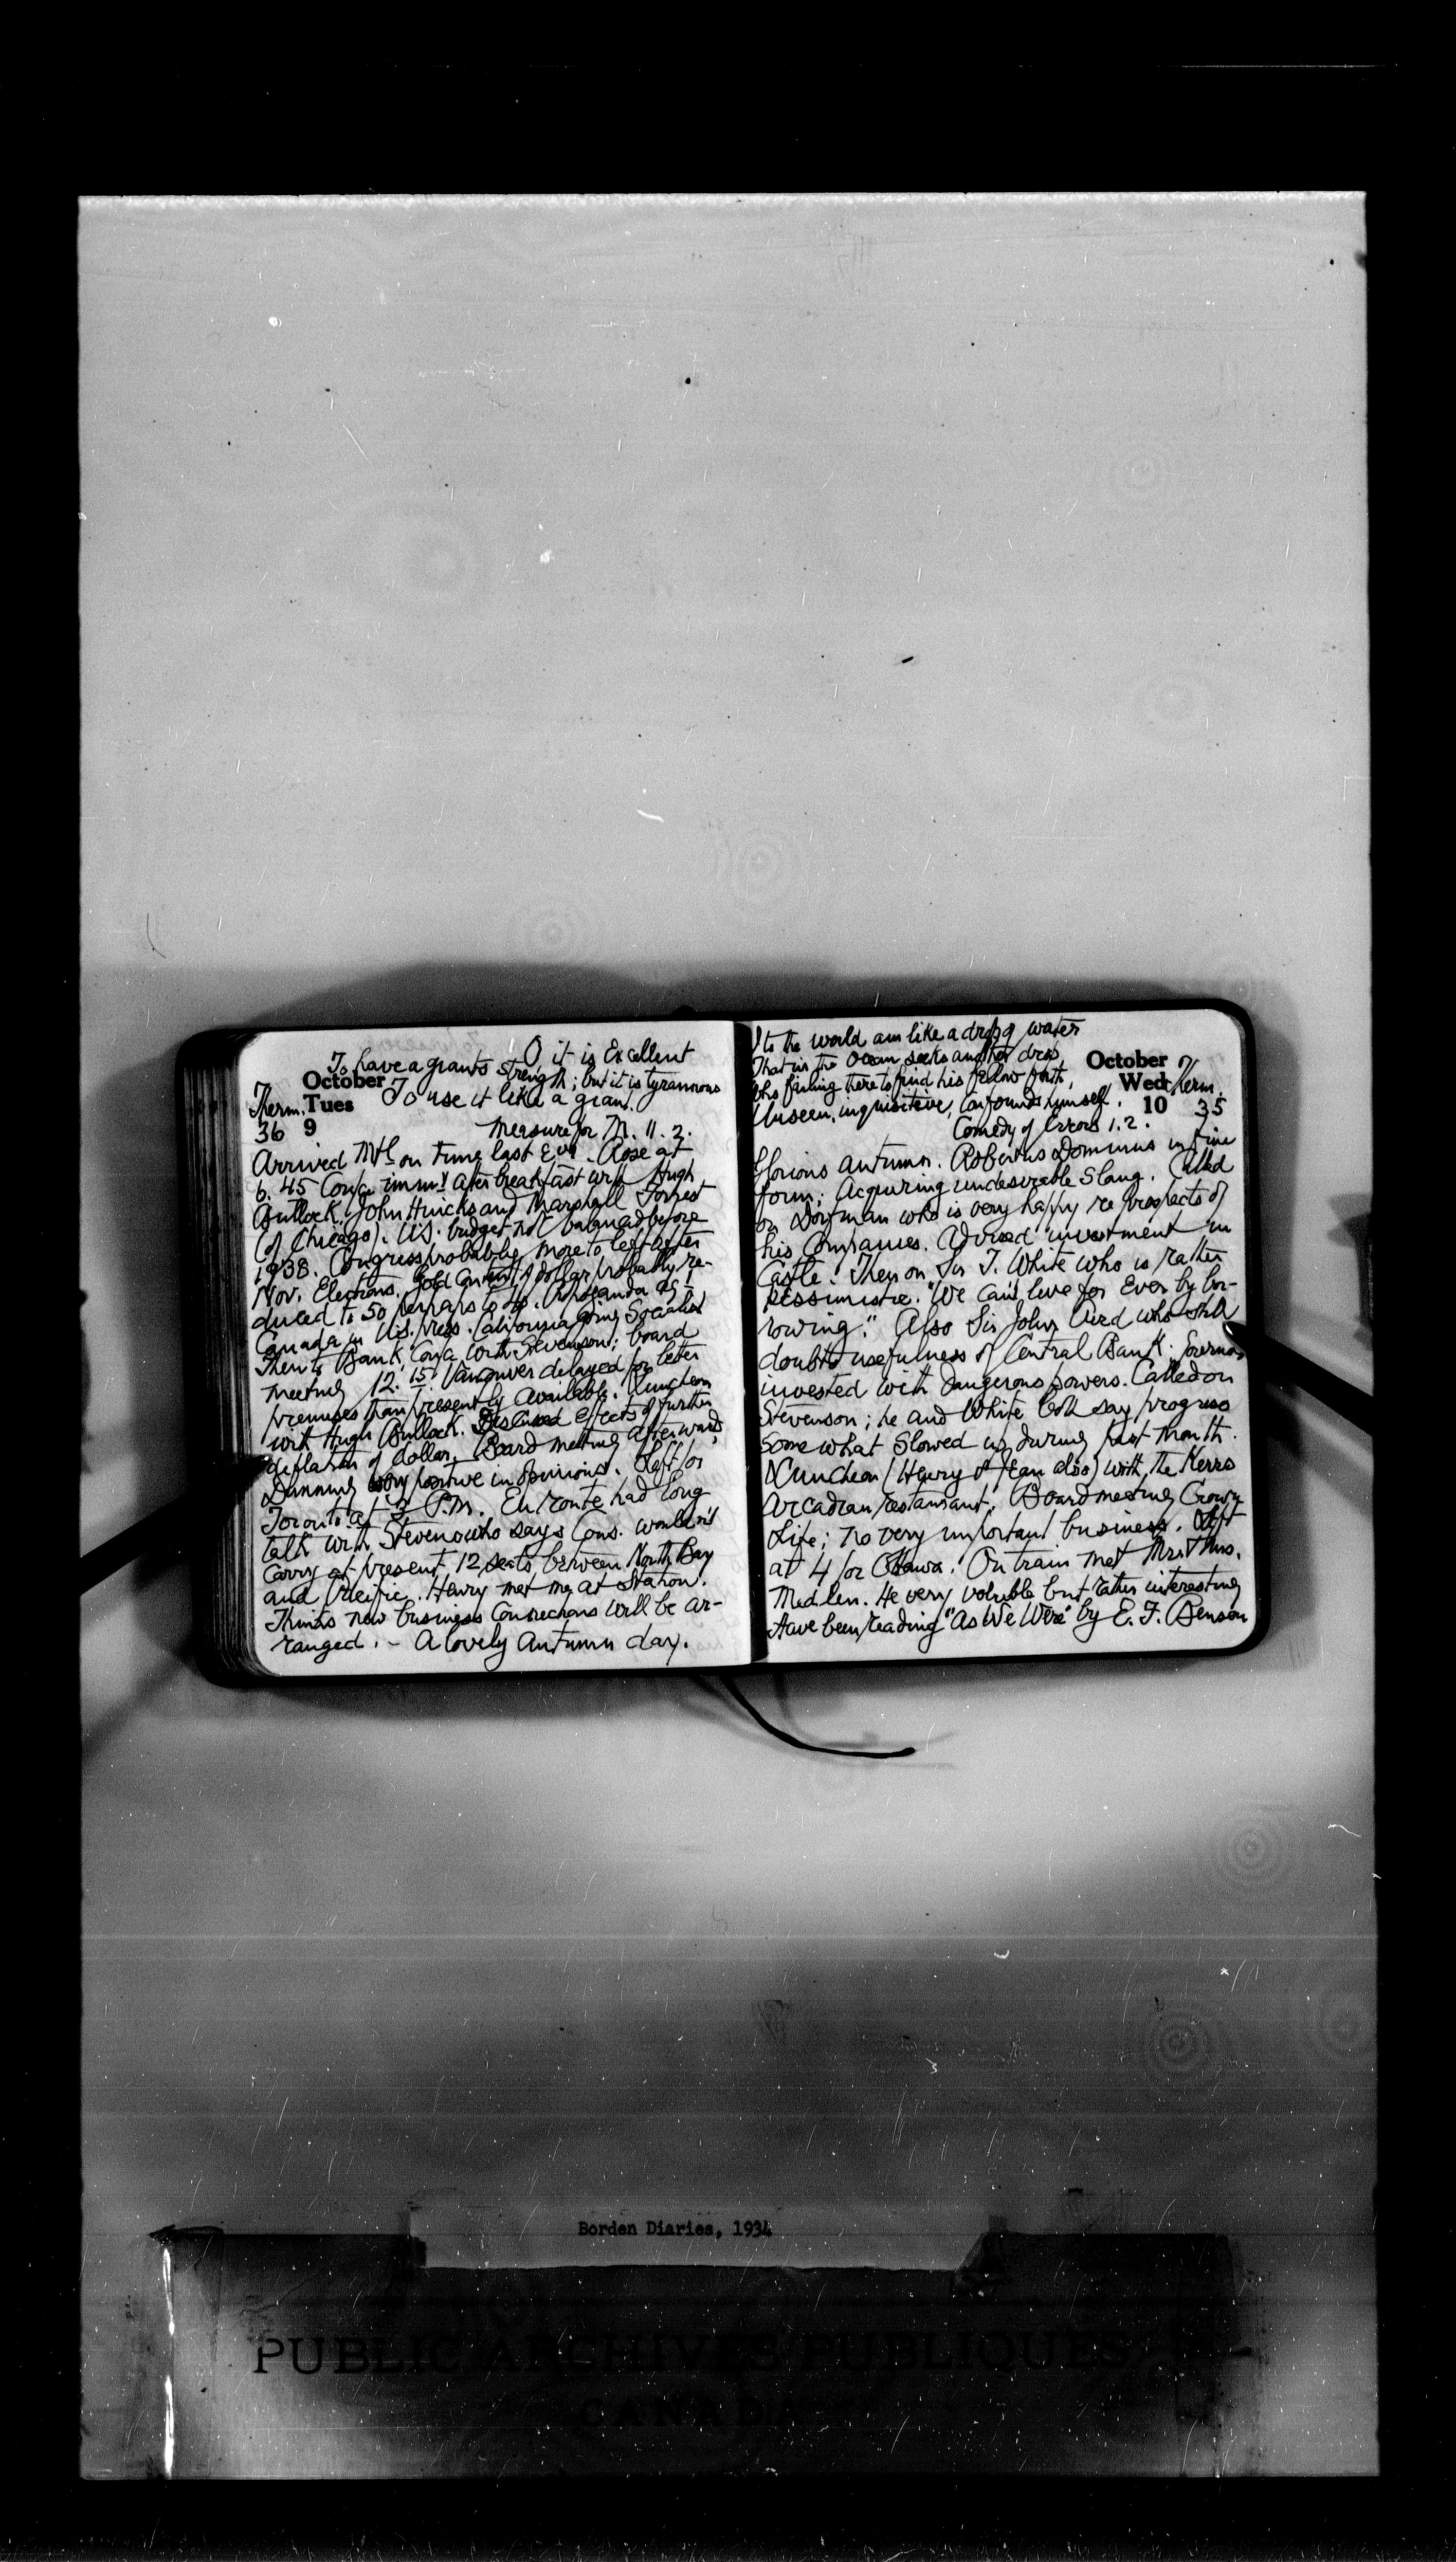 O it is Excellent
To have a giants strength; but it is tyrannous
October To use it like a giant.
Therm. Tues
36 9 Measure for M. 11. 2.
Arrived Mtl on time last Eve. Rose at
6.45 Conf. imm! after breakfast with Hugh
Bullock, John Hincks and Marshall Forrest
(of Chicago). U.S. budget not balanced before
1938. Congress probably more to left after
Nov. Elections. Gold content of dollar probably re-
duced to 50 perhaps to 40. Propaganda ag-t
Canada in U.S. press. California going Socialist
Then to Bank, Conf. with Stevenson; board
meeting 12.15. Vancouver delayed for better
premises than presently available. Luncheon
with Hugh Bullock. Discussed effects of further
deflation of dollar. Board meeting afterward,
Dunning very positive in opinions. Left for
Toronto at 3 P.M. En route had long
talk with Stevens who says Cons. wouldn't
carry at present, 12 seats between North Bay
and Pacific. Henry met me at Station.
Thinks new business connections will be ar-
ranged. - A lovely Autumn day.
I to the world am like a drop of water
That in the Ocean seeks another drop,
Who failing there to find his fellow forth,
Unseen, inquisitive, Confounds himself.
Comedy of Errors 1.2.
October
Wed Therm.
10 35
Glorious autumn. Robertus Dominus in fine
form; Acquiring undesirable Slang. Called
on Dorfman who is very happy re prospects of
his Companies. Advised investment in
Castle. Then on Sir T. White who is rather
pessimistic. "We can't live for Ever by bor-
rowing." Also Sir John Aird who still
doubts usefulness of Central Bank. Governor
invested with dangerous powers. Called on
Stevenson; he and White both say progress
somewhat slowed up during past month.
Luncheon (Henry & Jean also) with the Kerrs
Arcadian restaurant. Board meeting Crown
Life; no very important business. Left
at 4 for Ottawa. On train met Mr. & Mrs.
Medlen. He very voluble but rather interesting
Have been reading "As We Were" by E. F. Benson
Borden Diaries, 1934
PUBLIC ARCHIVES PUBLIQUES
CANADA